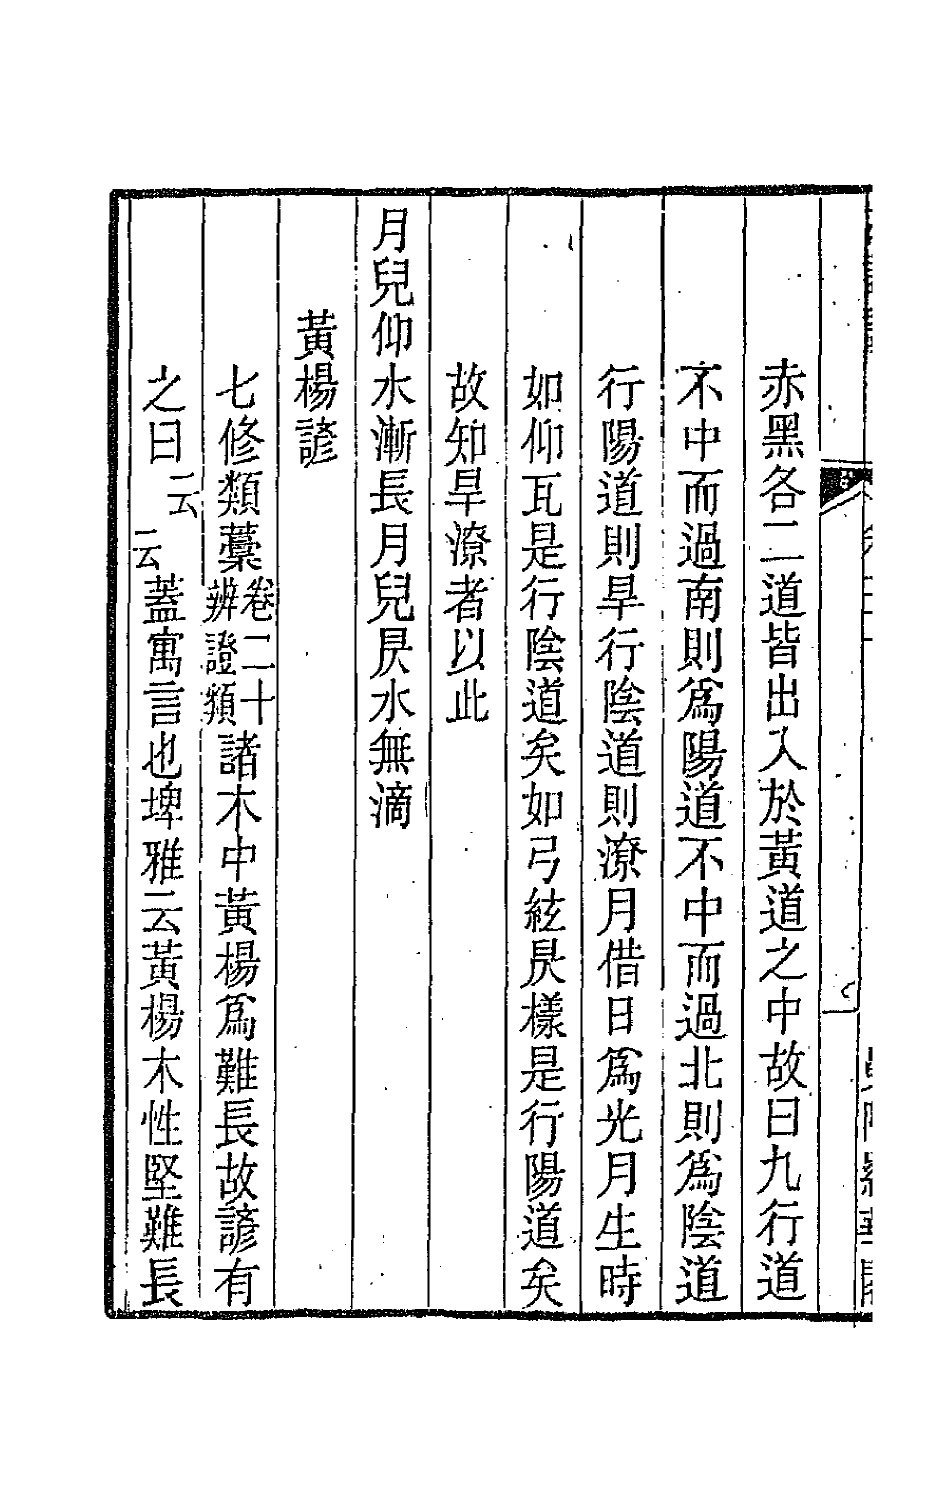 赤黑各二道皆出入於黃道之中故曰九行道
不中而過南則爲陽道不中而過北則爲陰道
行陽道則旱行陰道則潦月借日爲光月生時
如仰瓦是行陰道矣如弓絃昃樣是行陽道矣
故知旱潦者以此
月兒仰水漸長月兒昃水無滴
黃楊諺
七修類藳卷二十辨證類諸木中黃楊爲難長故諺有
之曰云云蓋寓言也埤雅云黃楊木性堅難長